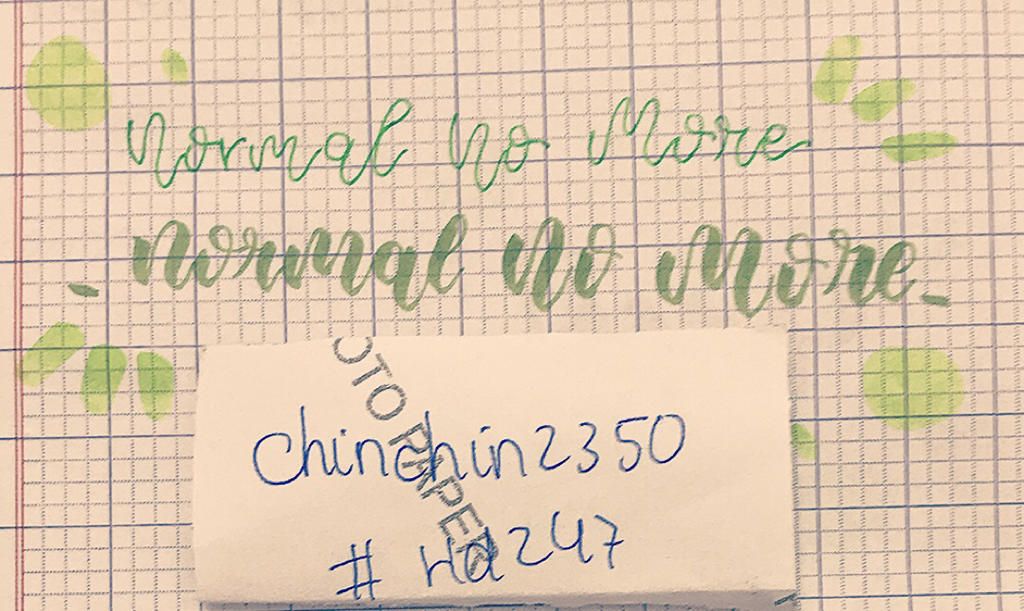 normal no more
- normal no more -
OTO PAPER
chinchin2350
# rd247